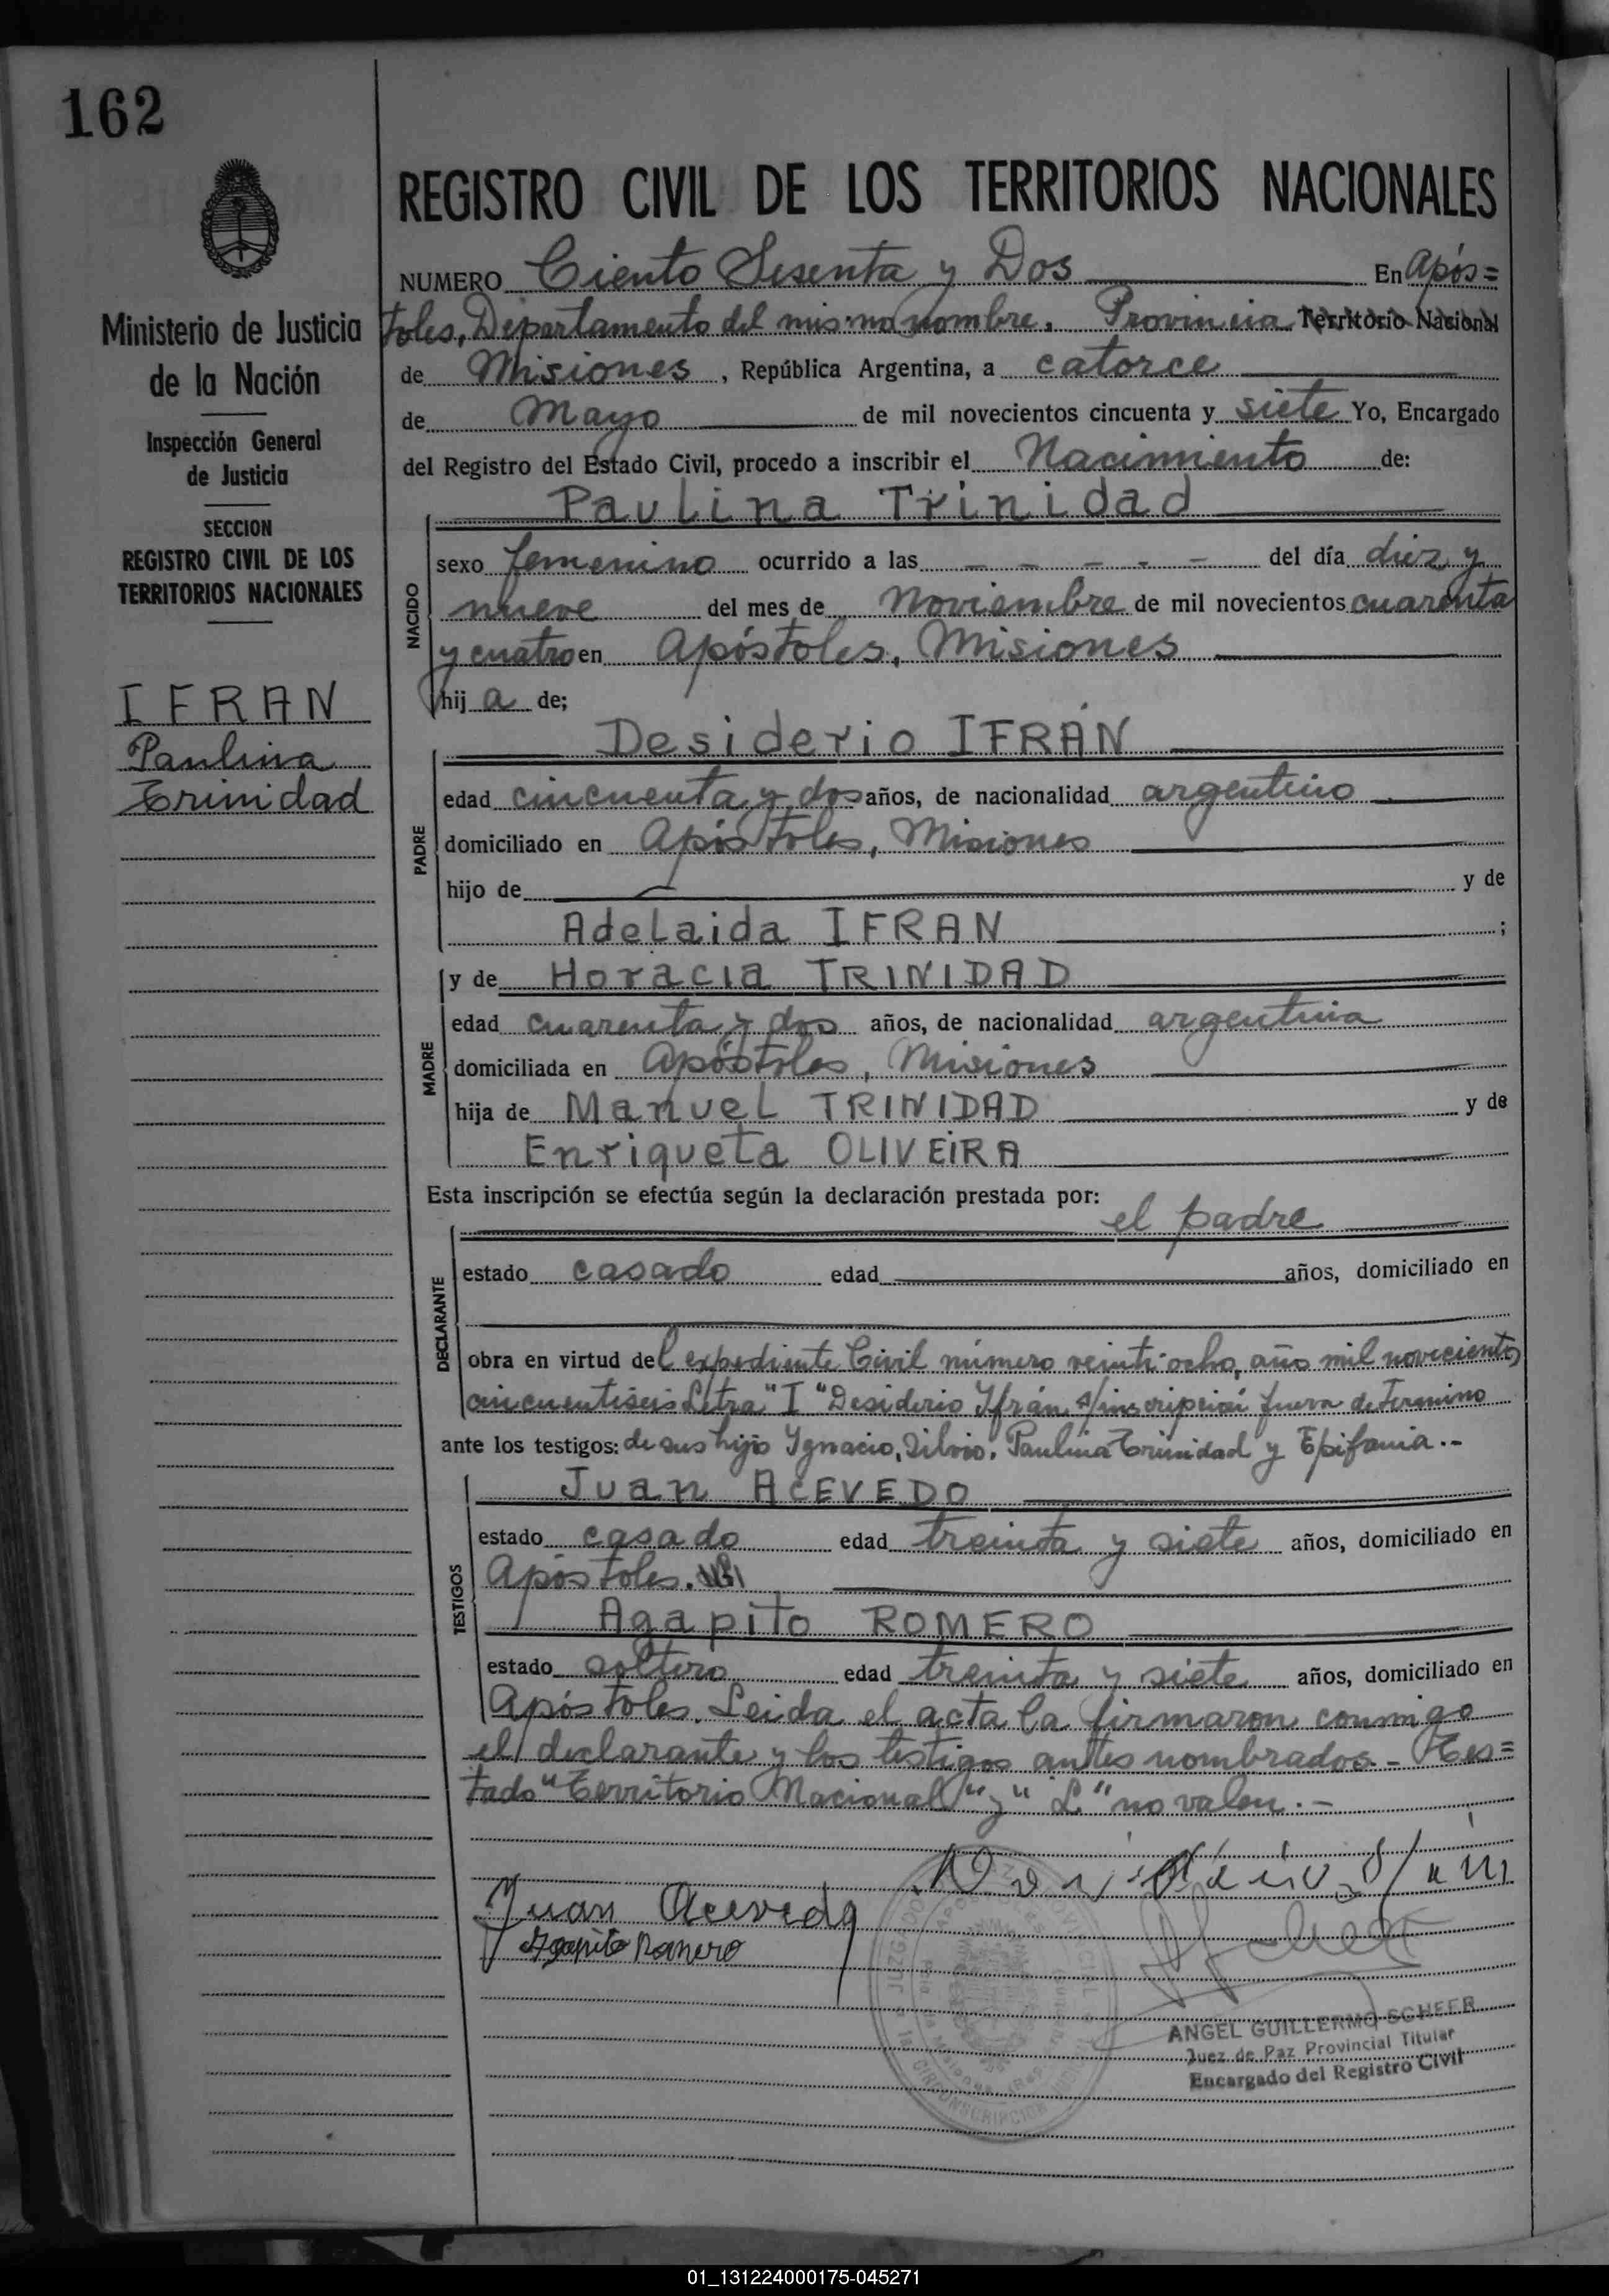 162
Ministerio de Justicia
de la Nación
Inspección General
de Justicia
SECCION
REGISTRO CIVIL DE LOS
TERRITORIOS NACIONALES
IFRAN
Paulina
Trinidad
REGISTRO CIVIL DE LOS TERRITORIOS NACIONALES
NUMERO Ciento Sesenta y Dos En Após=
toles, Departamento del mismo nombre. Provincia Territorio Nacional
de Misiones, República Argentina, a catorce
de Mayo de mil novecientos cincuenta y siete Yo, Encargado
del Registro del Estado Civil, procedo a inscribir el Nacimiento de:
Paulina Trinidad
NACIDO
sexo femenino ocurrido a las - - - - - del día diez y
nueve del mes de Noviembre de mil novecientos cuarenta
y cuatro en Apóstoles, Misiones
hija de;
Desiderio IFRÁN
PADRE
edad cincuenta y dos años, de nacionalidad argentino
domiciliado en Apóstoles, Misiones
hijo de y de
Adelaida IFRAN ;
y de Horacia TRINIDAD
MADRE
edad cuarenta y dos años, de nacionalidad argentina
domiciliada en Apóstoles, Misiones
hija de Manuel TRINIDAD y de
Enriqueta OLIVEIRA
Esta inscripción se efectúa según la declaración prestada por:
el padre
DECLARANTE
estado casado edad años, domiciliado en
obra en virtud del expediente Civil número veinti ocho, año mil novecientos
cincuentiseis Letra "I" Desiderio Yfrán s/inscripción fuera de termino
ante los testigos: de sus hijo Ygnacio, Silvio, Paulina Trinidad y Epifania.--
Juan ACEVEDO
TESTIGOS
estado casado edad treinta y siete años, domiciliado en
Apóstoles.
Agapito ROMERO
estado soltero edad treinta y siete años, domiciliado en
Apóstoles. Leida el acta la firmaron conmigo
el declarante y los testigos antes nombrados - Tes=
tado "Territorio Nacional" y "L" no valen.-
Juan Acevedo
Agapito Romero
ANGEL GUILLERMO SCHEER
Juez de Paz Provincial Titular
Encargado del Registro Civil
01_131224000175-045271